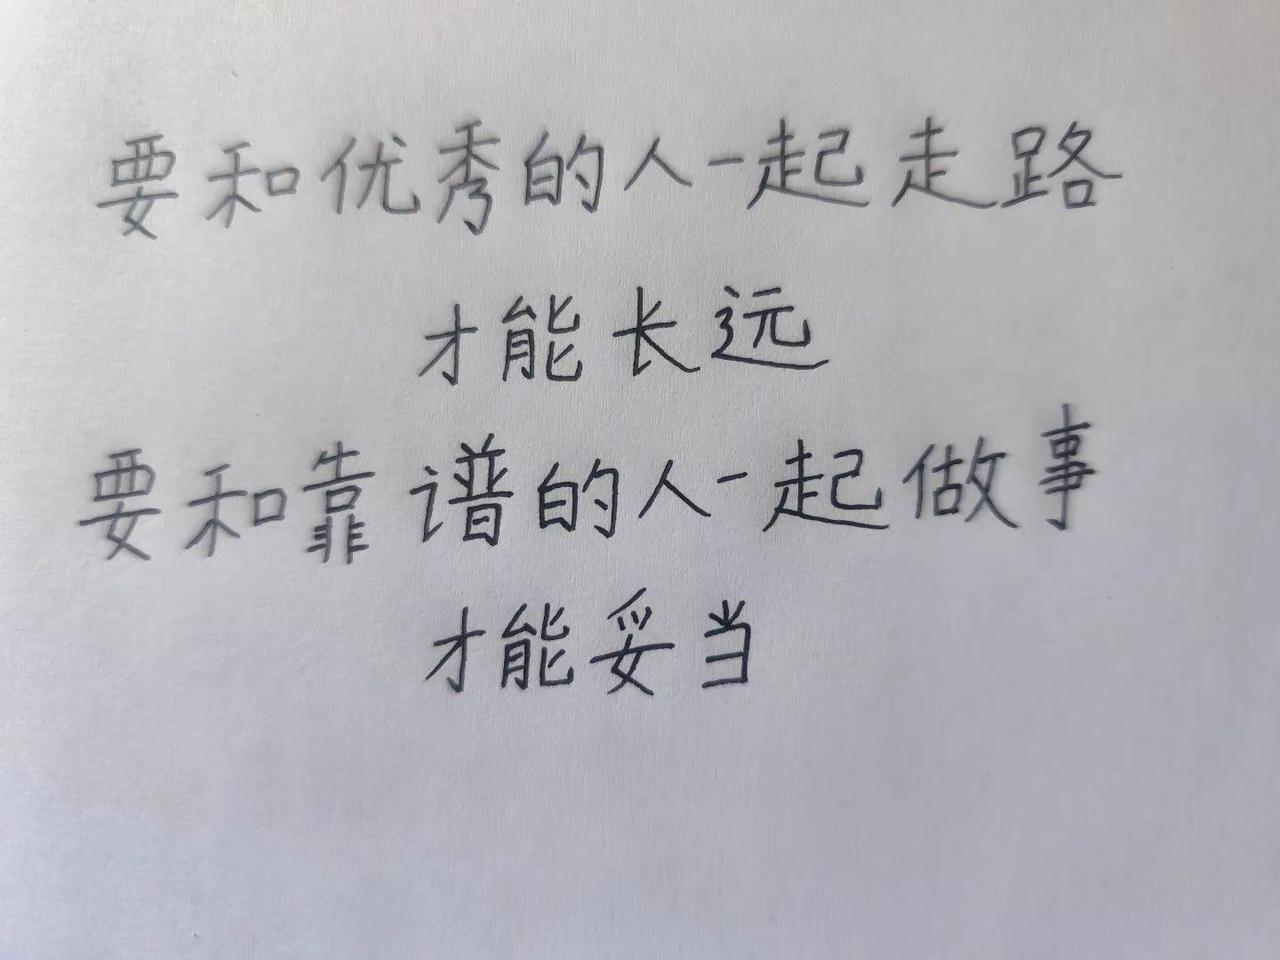 要和优秀的人一起走路
才能长远
要和靠谱的人一起做事
才能妥当